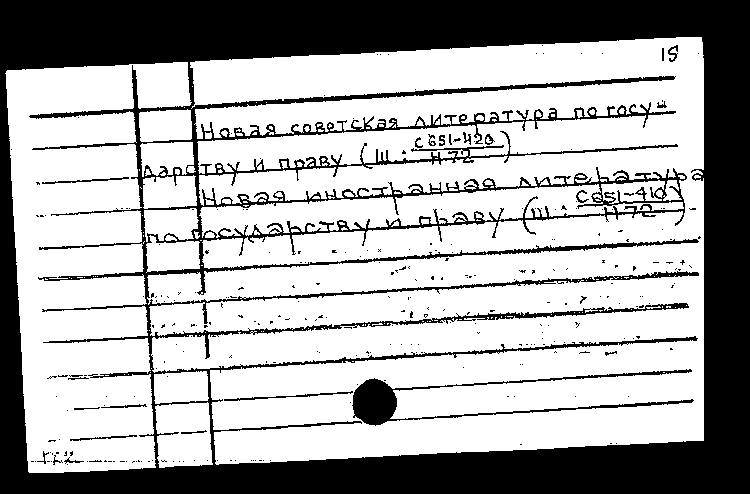 18
Новая советская литература по госу-
дарству и праву (Ш: С651-420/Н-72)
Новая иностранная литература
по государству и праву (Ш: С651-410/Н-72)